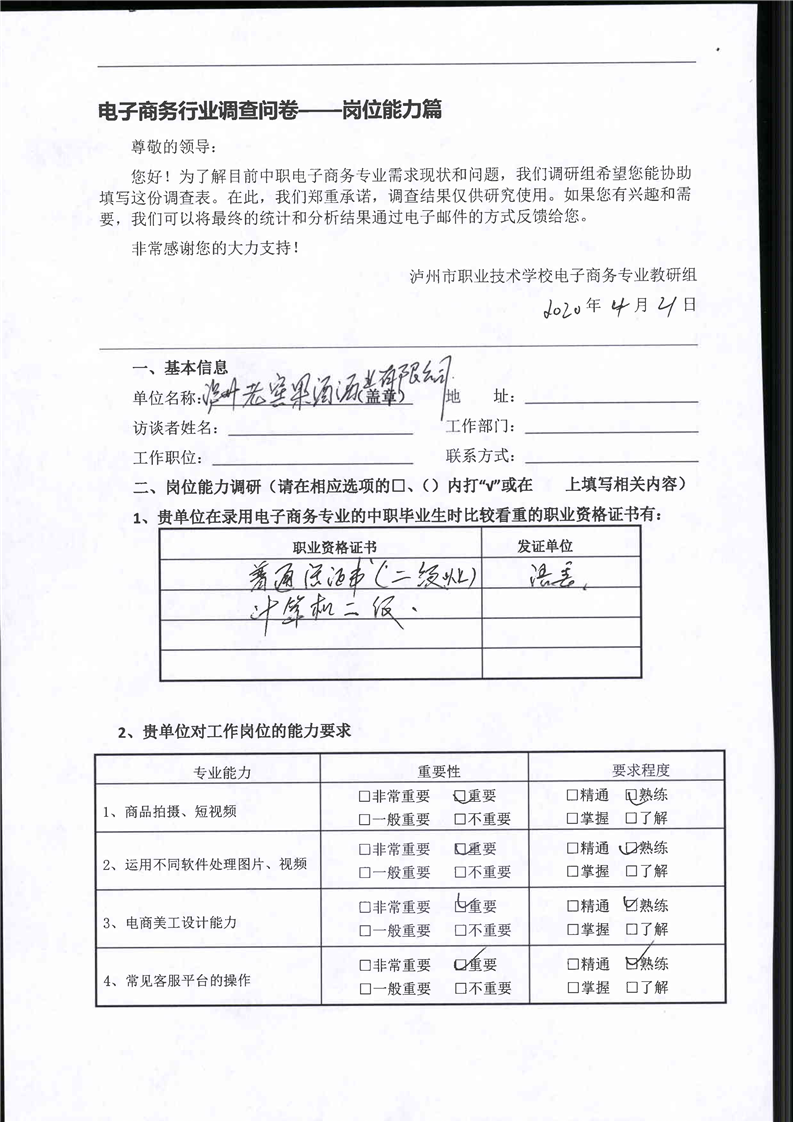 电子商务行业调查问卷——岗位能力篇
尊敬的领导：
您好！为了解目前中职电子商务专业需求现状和问题，我们调研组希望您能协助
填写这份调查表。在此，我们郑重承诺，调查结果仅供研究使用。如果您有兴趣和需
要，我们可以将最终的统计和分析结果通过电子邮件的方式反馈给您。
非常感谢您的大力支持！
泸州市职业技术学校电子商务专业教研组
2020年 4月 21日
一、基本信息
单位名称：泸州老窖果酒酒业有限公司（盖章） 地 址：
访谈者姓名： 工作部门：
工作职位： 联系方式：
二、岗位能力调研（请在相应选项的□、（）内打“√”或在 上填写相关内容）
1、贵单位在录用电子商务专业的中职毕业生时比较看重的职业资格证书有：
职业资格证书 发证单位
普通话证书（二级以上）
计算机二级.
2、贵单位对工作岗位的能力要求
专业能力 重要性 要求程度
1、商品拍摄、短视频 □非常重要 ☑重要 □精通 ☑熟练
□一般重要 □不重要 □掌握 □了解
2、运用不同软件处理图片、视频 □非常重要 ☑重要 □精通 ☑熟练
□一般重要 □不重要 □掌握 □了解
3、电商美工设计能力 □非常重要 ☑重要 □精通 ☑熟练
□一般重要 □不重要 □掌握 □了解
4、常见客服平台的操作 □非常重要 ☑重要 □精通 ☑熟练
□一般重要 □不重要 □掌握 □了解